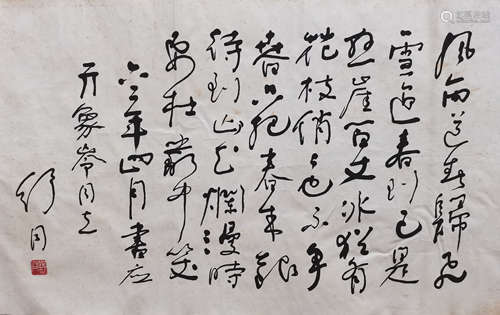 风雨送春歸飞
雪迎春到已是
悬崖百丈冰犹有
花枝俏俏也不争
春只把春来报
待到山花爛漫時
她在叢中笑
六三年四月書应
亓象岑同志
舒同